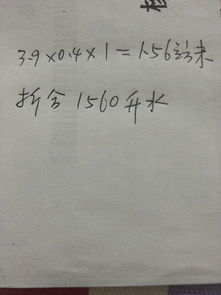 3.9×0.4×1=1.56立方米
折合1560升水